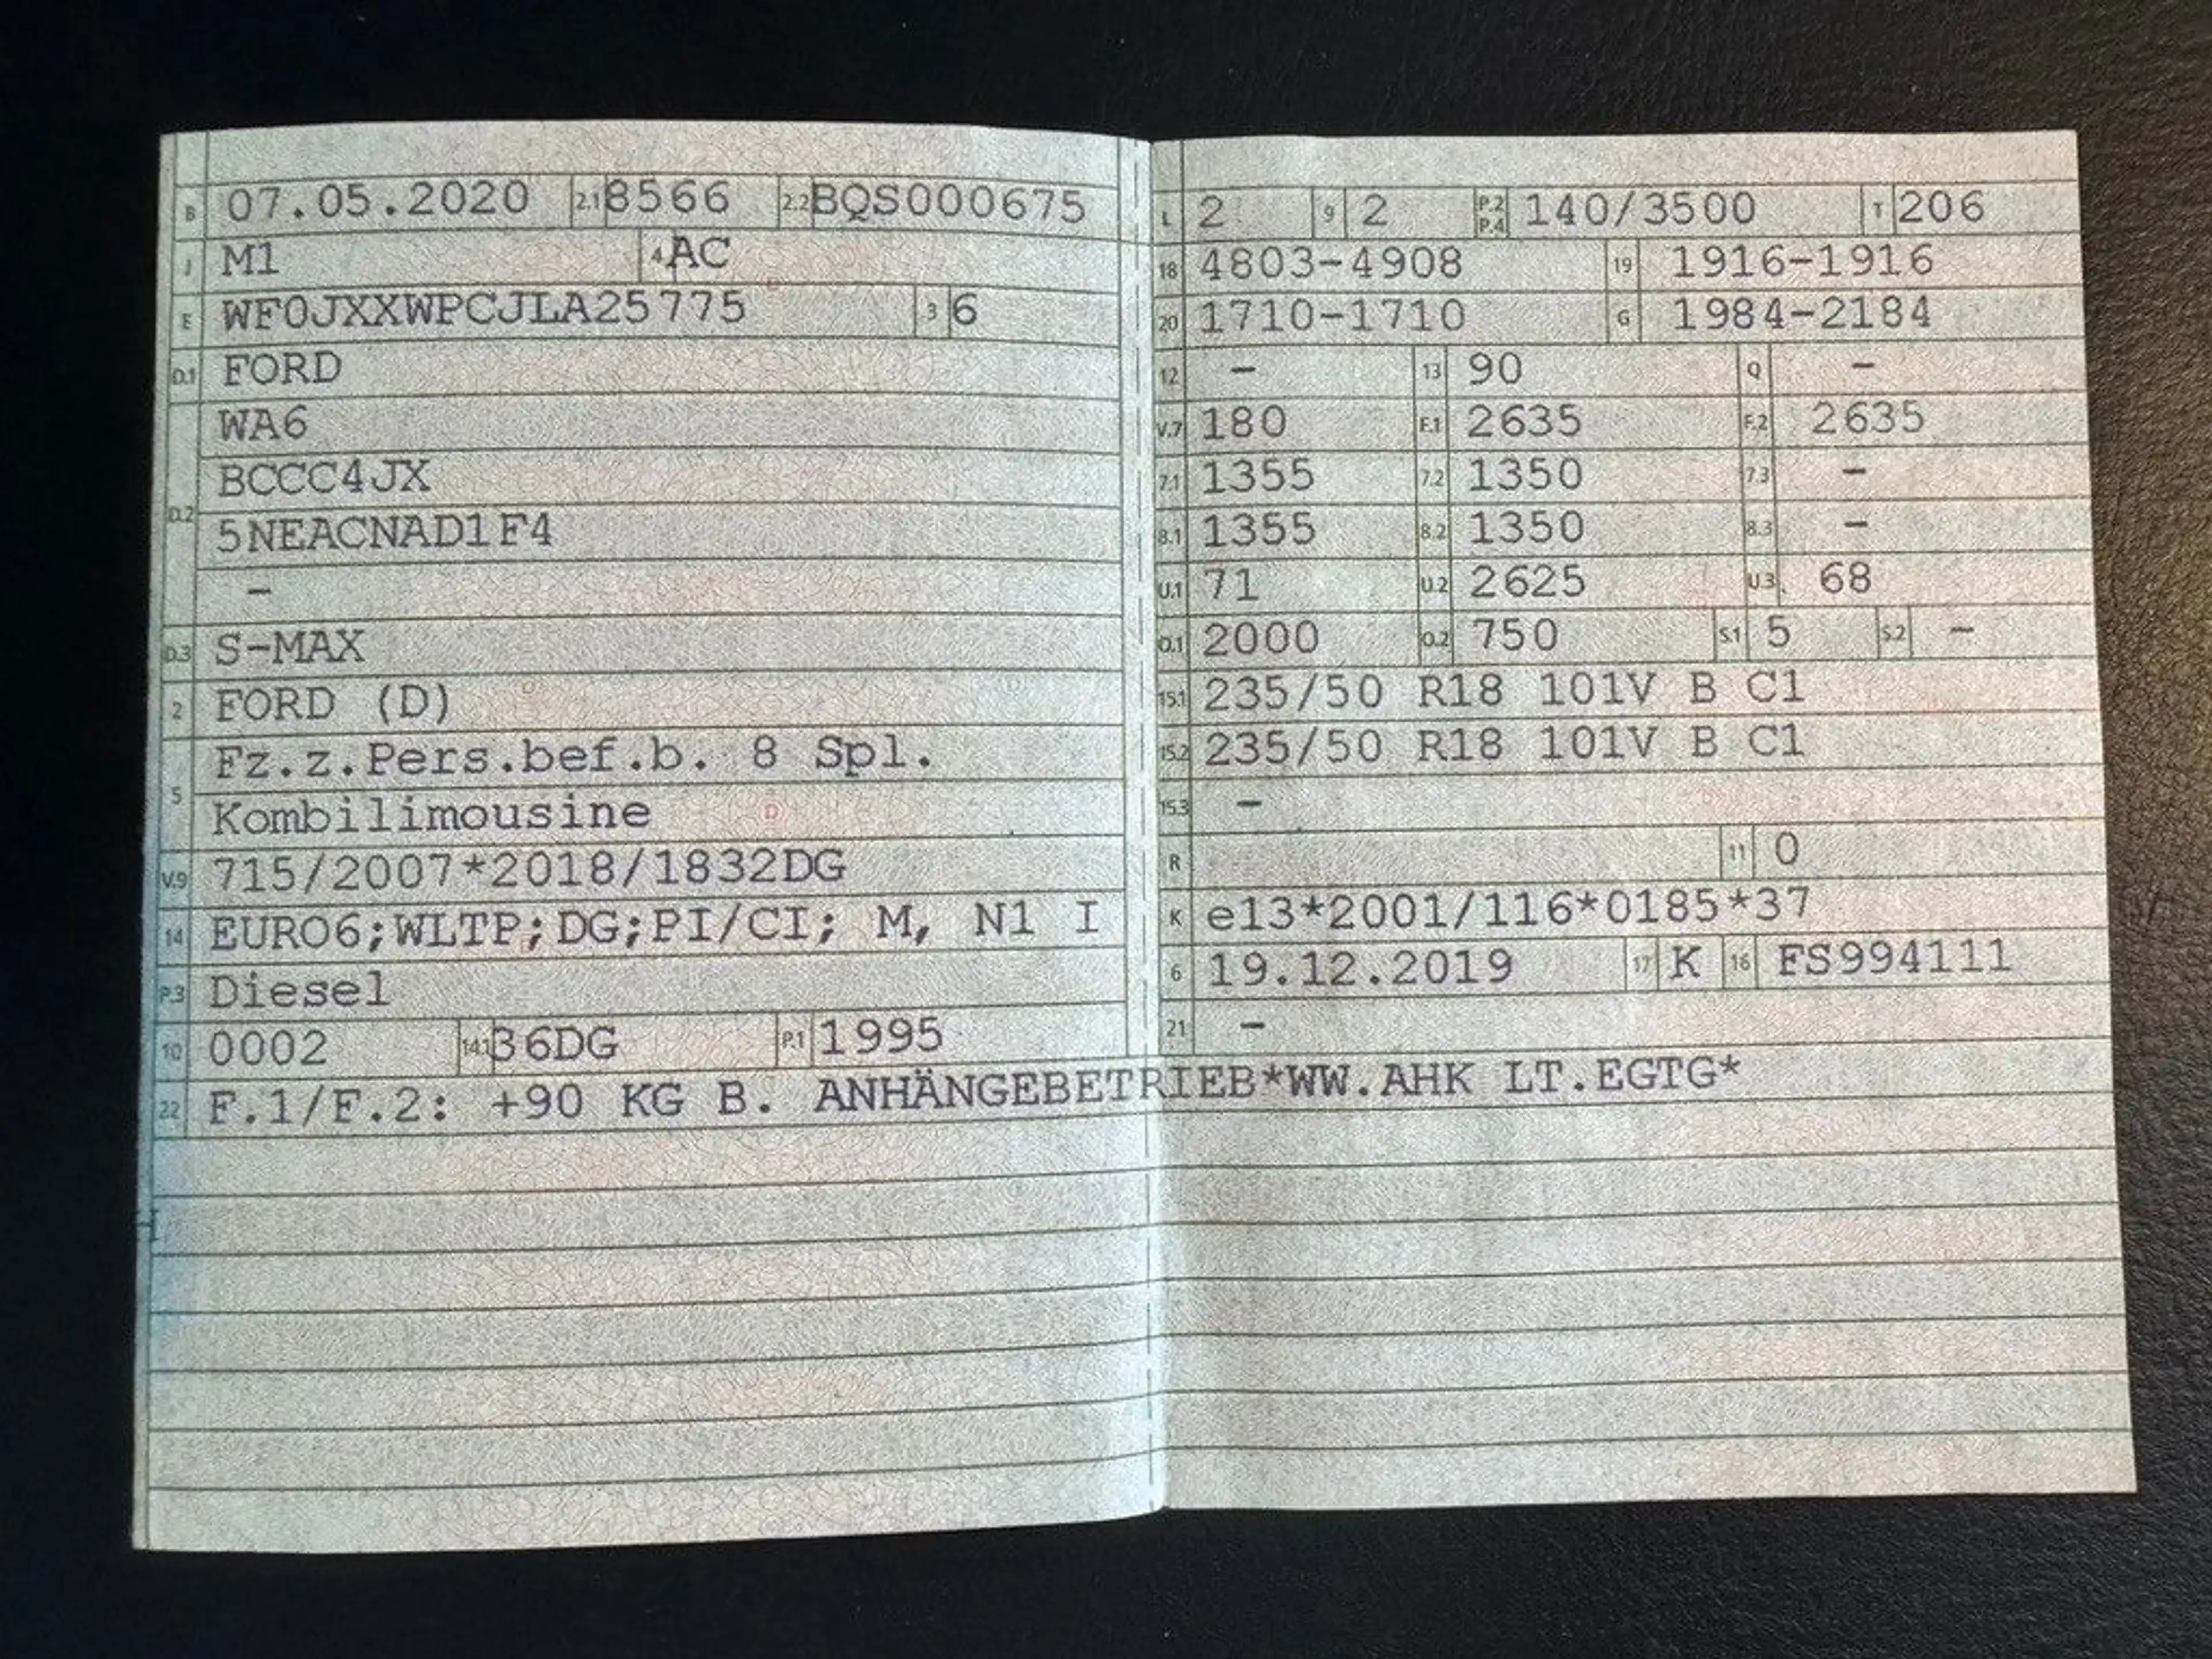 B 07.05.2020 2.1 8566 2.2 BQS000675
J M1 4 AC
E WF0JXXWPCJLA25775 3 6
D.1 FORD
D.2 WA6
BCCC4JX
5NEACNAD1F4
–
D.3 S-MAX
2 FORD (D)
5 Fz.z.Pers.bef.b. 8 Spl.
Kombilimousine
V.9 715/2007*2018/1832DG
14 EURO6;WLTP;DG;PI/CI; M, N1 I
P.3 Diesel
10 0002 14.1 36DG P.1 1995
L 2 9 2 P.2 P.4 140/3500 T 206
18 4803-4908 19 1916-1916
20 1710-1710 G 1984-2184
12 – 13 90 Q –
V.7 180 F.1 2635 F.2 2635
7.1 1355 7.2 1350 7.3 –
8.1 1355 8.2 1350 8.3 –
U.1 71 U.2 2625 U.3 68
O.1 2000 O.2 750 S.1 5 S.2 –
15.1 235/50 R18 101V B C1
15.2 235/50 R18 101V B C1
15.3 –
R 11 0
K e13*2001/116*0185*37
6 19.12.2019 17 K 16 FS994111
21 –
22 F.1/F.2: +90 KG B. ANHÄNGEBETRIEB*WW.AHK LT.EGTG*
H